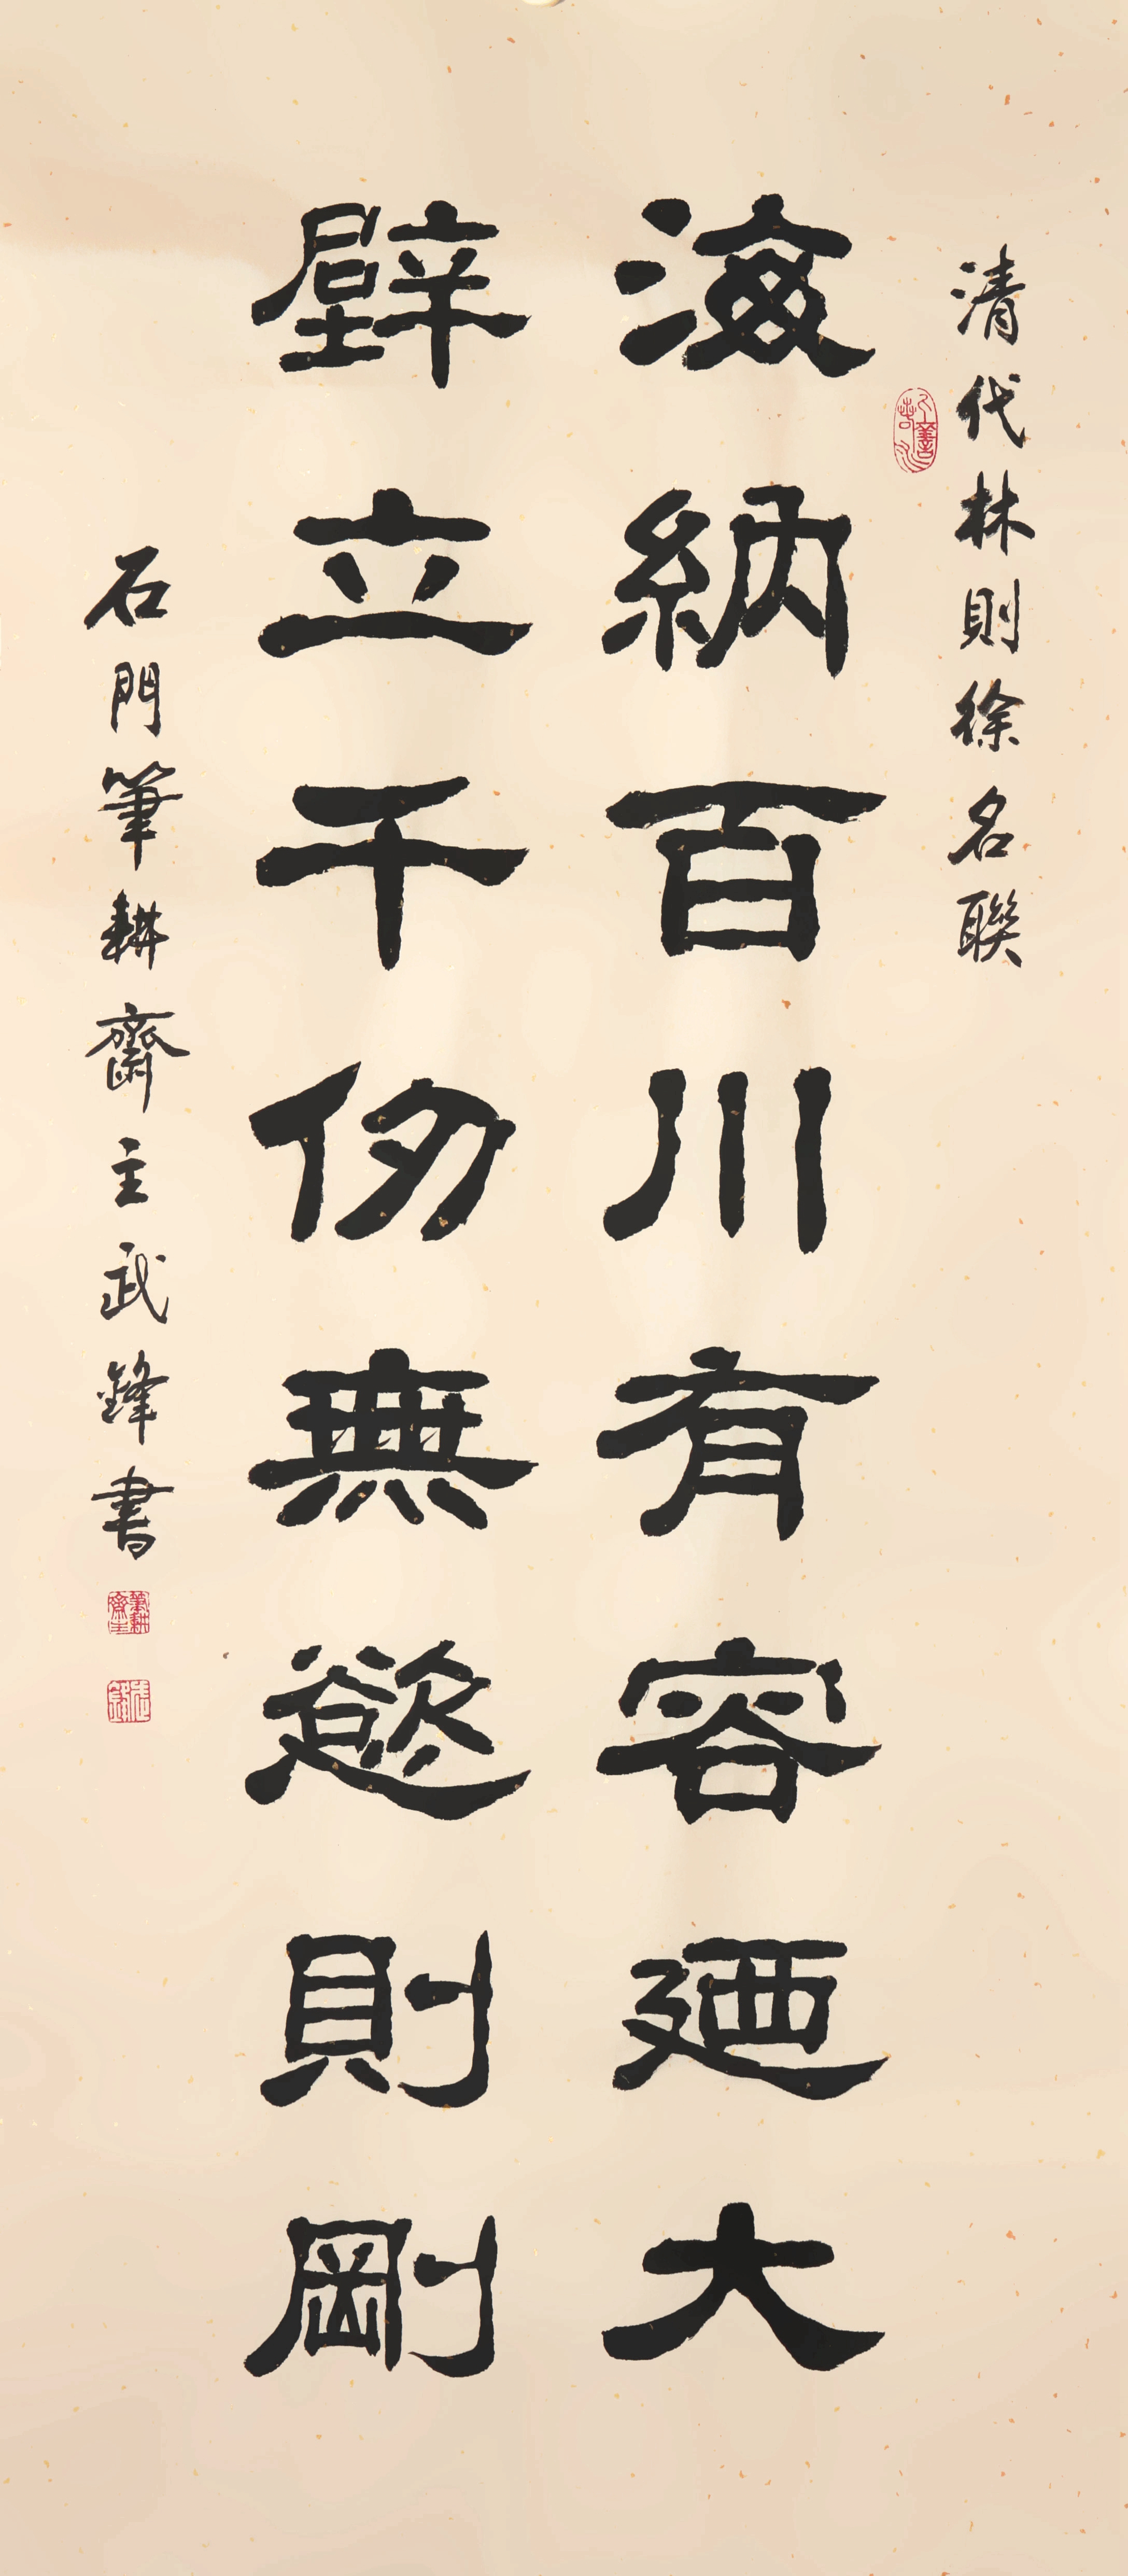 清代林則徐名聯
海納百川有容廼大
壁立千仞無慾則剛
石門筆耕齋主武鋒書
筆耕齋主